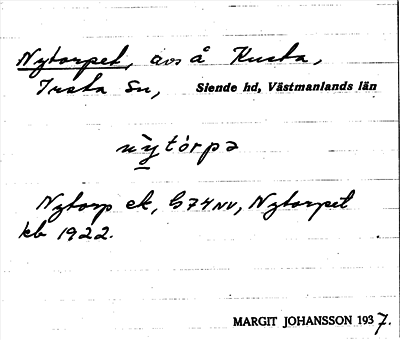 Nytorpet, avs å Kusta,
Irsta Sn, Siende hd, Västmanlands län
nỳtórpə
Nytorp ek, G74NV, Nytorpet
kb 1922.
MARGIT JOHANSSON 1937.